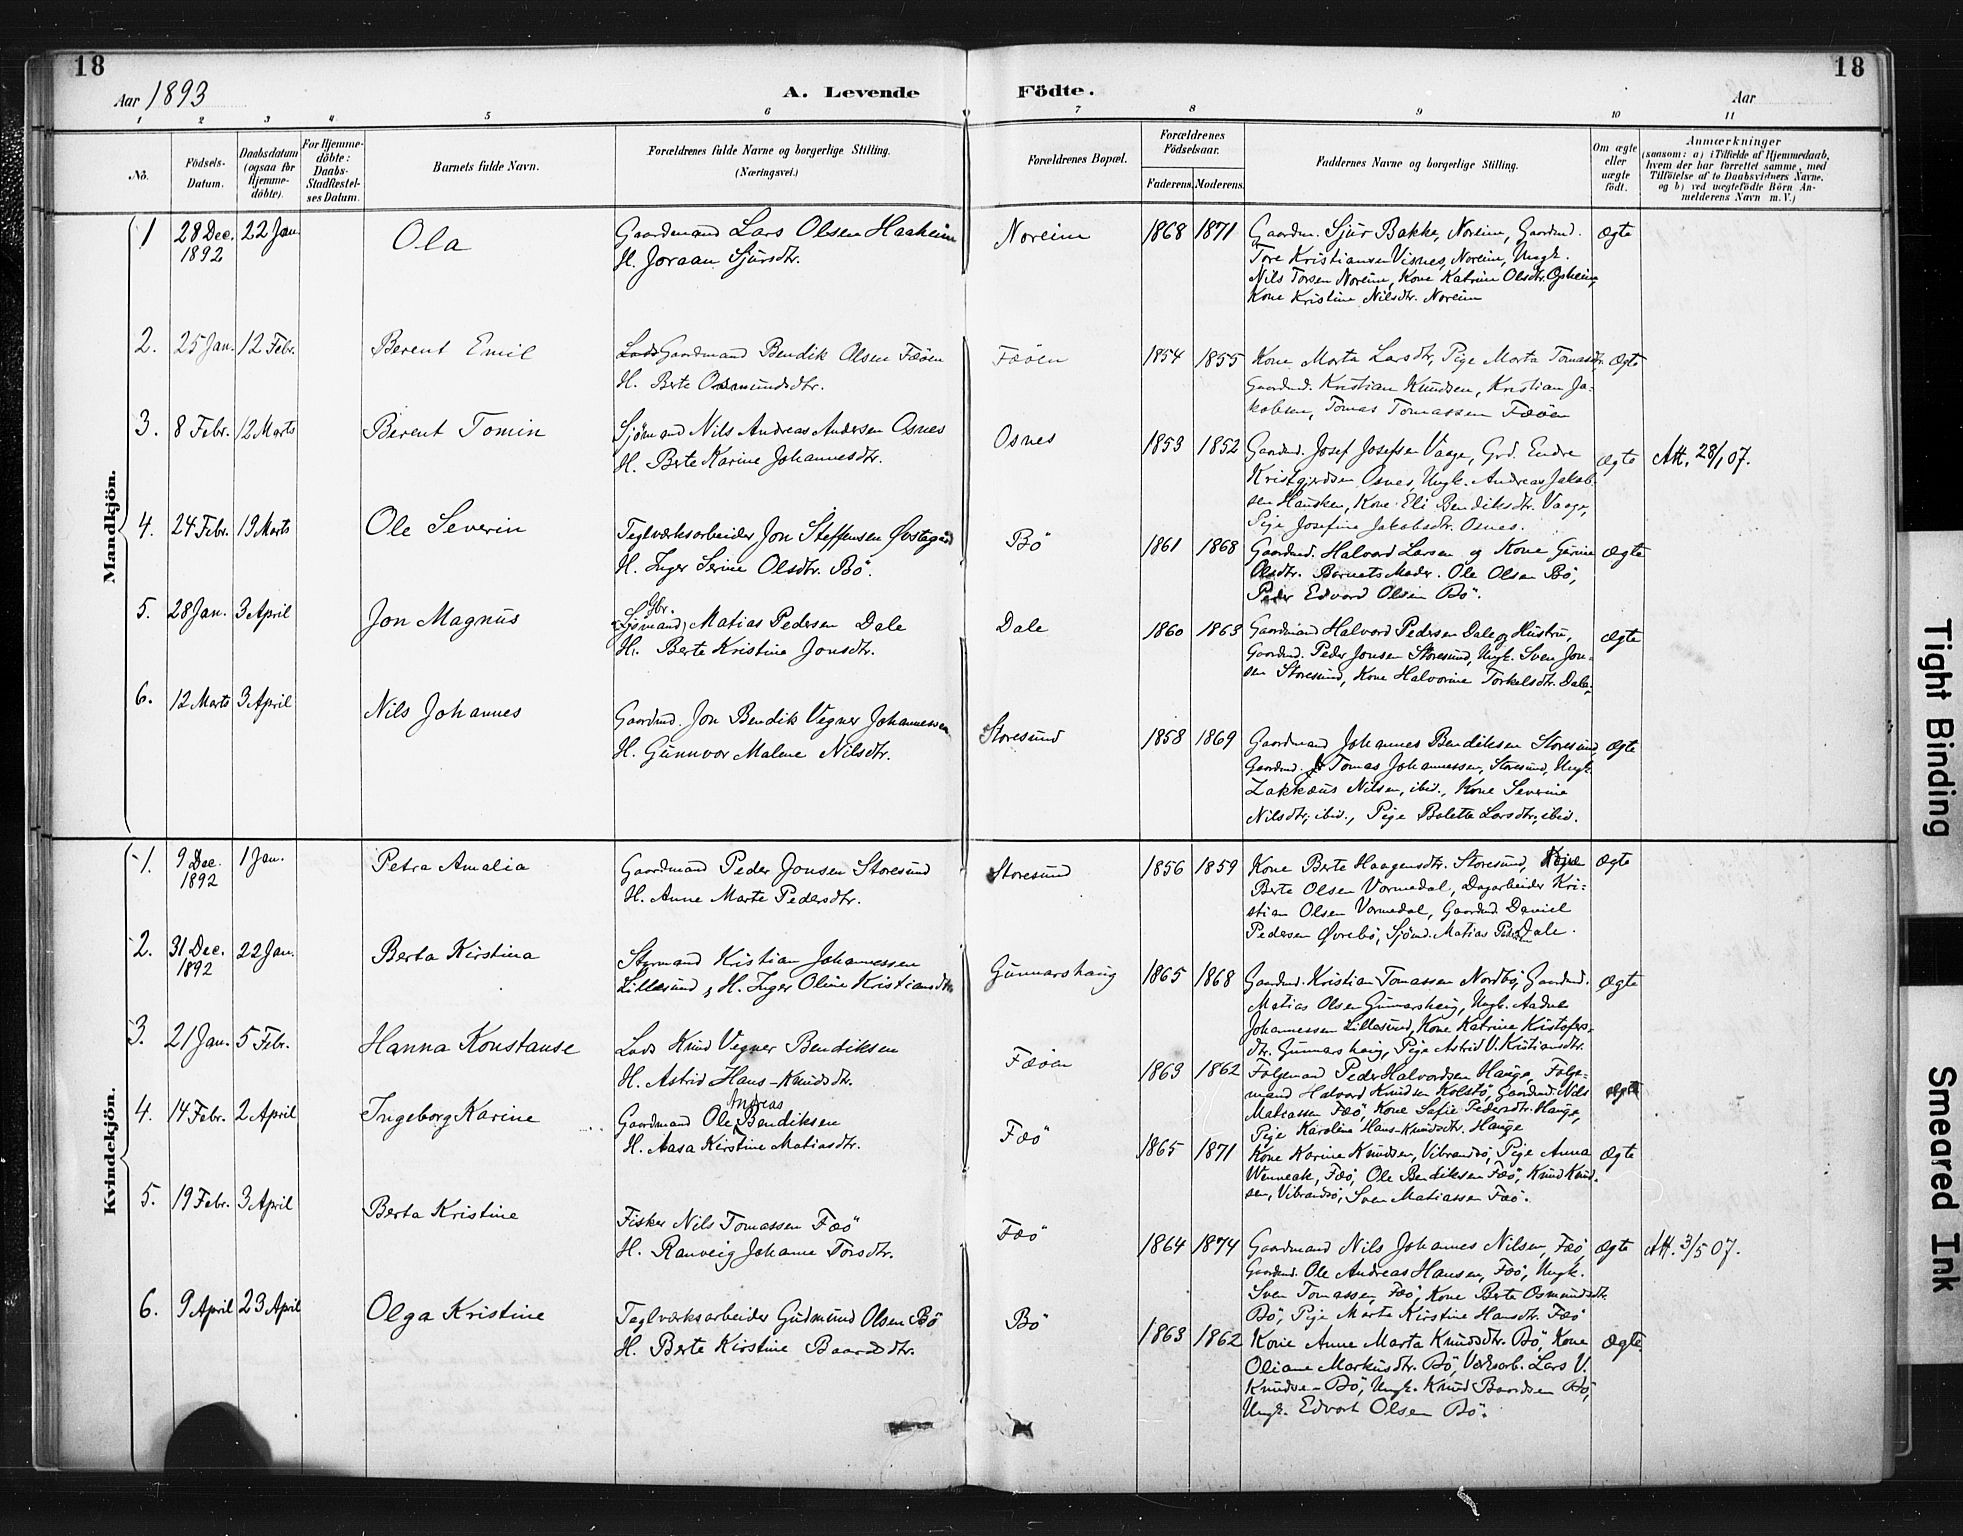 18
18
Aar 1893
A. Levende Födte.
Aar
1 2 3 4 5 6 7 8 9 10 11
No.
Födsels-Datum.
Daabsdatum (ogsaa for Hjemme-döbte).
For Hjemme-döbte: Daabs-Stadfæstel-ses Datum.
Barnets fulde Navn.
Forældrenes fulde Navne og borgerlige Stilling.
(Næringsvei.)
Forældrenes Bopæl.
Forældrenes Födselsaar.
Faderens. Moderens.
Faddernes Navne og borgerlige Stilling.
Om ægte eller uægte födt.
Anmærkninger
(saasom: a) i Tilfælde af Hjemmedaab, hvem der har forrettet samme, med Tilföielse af to Daabsvidners Navne, og b) ved uægtefödte Börn Anmelderens Navn m.V.)
Mandkjön.
1 28 Dec. 1892 22 Jan. Ola
Gaardmand Lars Olsen Haaheim
H. Joraan Sjursdtr.
Noreim 1868 1871
Gaardm. Sjur Bakke, Noreim, Gaardmd.
Tore Kristiansen Visnes, Noreim, Ungk.
Nils Torsen Noreim, Kone Katrine Olsdtr. Osheim,
Kone Kristine Nilsdtr. Noreim
Ægte
2. 25 Jan. 12 Febr. Berent Emil
Lods Gaardmand Bendik Olsen Fæöen
H. Berte Osmundsdtr.
Fæöen 1854 1855
Kone Marta Larsdtr, Pige Marta Tomasdtr.
Gaardmd. Kristian Knudsen, Kristian Ja-
kobsen, Tomas Tomassen Fæöen
Ægte
3. 8 Febr. 12 Marts Berent Tomin
Sjömand Nils Andreas Andersen Osnes
H. Berte Karine Johannesdtr.
Osnes 1853 1852
Gaardmd. Josef Josefsen Vaage, Grd. Endre
Kristgjerdsen Osnes, Ungk. Andreas Jakob-
sen Hausken, Kone Eli Bendiksdtr. Vaage,
Pige Josefine Jakobsdtr. Osnes.
Ægte Att. 28/1 07.
4. 24 Febr. 19 Marts Ole Severin
Teglværksarbeider Jon Steffensen Övstegaard
H. Inger Serine Olsdtr. Bö.
Bö 1861 1868
Gaardmd. Halvord Larsen og Kone Gurine
Olsdtr. Barnets Moder. Ole Olsen Bö,
Peder Edvard Olsen Bö.
Ægte
5. 28 Jan. 3 April Jon Magnus
Gbr.
(Sjömand) Matias Pedersen Dale
H. Berte Kristine Jonsdtr.
Dale 1860 1863
Gaardmand Halvord Pedersen Dale og Hustru,
Gaardmd. Peder Jonsen Storesund, Ungk. Sven Jon-
sen Storesund, Kone Halvorine Torkelsdtr. Dale.
Ægte
6. 12 Marts 3 April Nils Johannes
Gaardmd. Jon Bendik Vegner Johannessen
H. Gunnvor Malene Nilsdtr.
Storesund 1858 1869
Gaardmand Johannes Bendiksen Storesund,
Gaardmd. Tomas Johannessen, Storesund, Ungk.
Zakkæus Nilsen, ibid., Kone Severine
Nilsdtr, ibid., Pige Bolette Larsdtr, ibid.
Ægte
Kvindekjön.
1. 9 Dec. 1892 1 Jan. Petra Amalia
Gaardmand Peder Jonsen Storesund
H. Anne Marte Pedersdtr.
Storesund 1856 1859
Kone Berte Haagensdtr. Storesund,
Berte Olsen Vormedal, Dagarbeider Kri-
stian Olsen Vormedal, Gaardmd. Daniel
Pedersen Övrebö, Sjömd. Matias Pedersen Dale.
Ægte
2. 31 Dec. 1892 22 Jan. Berta Kirstina
Styrmand Kristian Johannessen
Lillesund, H. Inger Oline Kristiansdtr.
Gunnarshaug 1865 1868
Gaardmd. Kristian Tomassen Nordbö, Gaardmd.
Matias Olsen Gunnarshaug, Ungk. Aadne
Johannessen Lillesund, Kone Katrine Kristofers-
dtr. Gunnarshaug, Pige Astrid V. Kristiansdtr.
Ægte
3. 21 Jan. 5 Febr. Hanna Konstanse
Lods Knud Vegner Bendiksen
H. Astrid Hans-Knudsdtr.
Fæöen 1863 1862
Folgemand Peder Halvordsen Hauge, Folge-
mand Halvord Knudsen Kolstö, Gaardmd. Nils
Matiassen Fæö, Kone Sofie Pedersdtr. Hauge,
Pige Karoline Hans-Knudsdtr. Hauge
Ægte
4. 14 Febr. 2 April Ingeborg Karine
Andreas
Gaardmand Ole Bendiksen
H. Aasa Kirstine Matiasdtr.
Fæö 1865 1871
Kone Karine Knudsen, Vibrandsö, Pige Anna
Wenneck, Fæö, Ole Bendiksen Fæö, Knud Knud-
sen, Vibrandsö, Sven Matiassen Fæö.
Ægte
5. 19 Febr. 3 April Berta Kristine
Fisker Nils Tomassen Fæö
H. Ranveig Johanne Torsdtr.
Fæö 1864 1874
Gaardmand Nils Johannes Nilsen, Fæö,
Gaardmd. Ole Andreas Hansen, Fæö, Ungk.
Sven Tomassen, Fæö, Kone Berte Osmundsdtr.
Bö, Pige Marta Kirstine Hansdtr. Fæö
Ægte Att. 3/5 07.
6. 9 April 23 April Olga Kristine
Teglværksarbeider Gudmund Olsen Bö
H. Berte Kirstine Baardsdtr.
Bö 1863 1862
Kone Anne Marta Knudsdtr. Bö, Kone
Oliane Markusdtr. Bö, Værksarb. Lars V.
Knudsen Bö, Ungk. Knud Baardsen Bö,
Ungk. Edvart Olsen Bö.
Ægte
Tight Binding
Smeared Ink